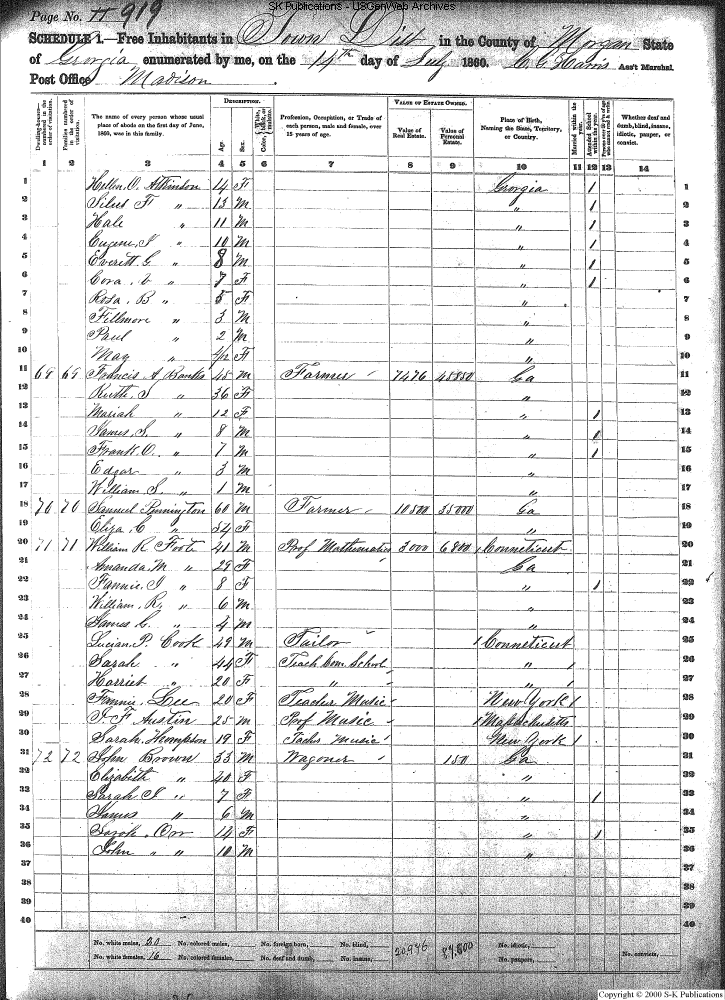 SK Publications - USGenWeb Archives
Page No. 919
SCHEDULE 1.—Free Inhabitants in Town Dist in the County of Morgan State
of Georgia enumerated by me, on the 14th day of July 1860. C C Harris Ass't Marshal.
Post Office Madison.
Dwelling-houses—numbered in the order of visitation.
Families numbered in the order of visitation.
The name of every person whose usual place of abode on the first day of June, 1860, was in this family.
DESCRIPTION.
Age.
Sex.
Color, White, black, or mulatto.
Profession, Occupation, or Trade of each person, male and female, over 15 years of age.
VALUE OF ESTATE OWNED.
Value of Real Estate.
Value of Personal Estate.
Place of Birth, Naming the State, Territory, or Country.
Married within the year.
Attended School within the year.
Persons over 20 y'rs of age who cannot read & write.
Whether deaf and dumb, blind, insane, idiotic, pauper, or convict.
1 2 3 4 5 6 7 8 9 10 11 12 13 14
1 Hellen, O. Atkinson 14 F Georgia / 1
2 Silus F " 13 M " / 2
3 Hale " 11 M " / 3
4 Eugene, J " 10 M " / 4
5 Everett G. " 8 M " / 5
6 Cora. V " 7 F " / 6
7 Rosa. B " 5 F " 7
8 Fillmore " 3 M " 8
9 Paul " 2 M " 9
10 May " /12 F " 10
11 69 69 Francis A Banks 45 M Farmer 7476 45850 Ga 11
12 Ruth, S " 36 F " 12
13 Mariah " 12 F " / 13
14 James, S. " 8 M " / 14
15 Frank. O. " 7 M " / 15
16 Edgar " 3 M " 16
17 William S. " 1 M " 17
18 70 70 Samuel Pennington 60 M Farmer 10500 35000 Ga 18
19 Eliza, C " 54 F " 19
20 71 71 William R. Foote 41 M Prof Mathematics 3000 6800 Conneticut 20
21 Amanda, M " 29 F Ga 21
22 Fannie, J " 8 F " / 22
23 William, R, " 6 M " 23
24 James C. " 4 M " 24
25 Lucian. P. Cook 49 M Tailor Conneticut 25
26 Sarah " 44 F Teach Com. School " 26
27 Harriet " 20 F " " " 27
28 Fannie, Lee 20 F Teacher Music New York 28
29 J. F. Austin 25 M Prof Music Massachusetts 29
30 Sarah, Thompson 19 F Teacher Music New York 30
31 72 72 John Brown 33 M Wagoner 150 Ga 31
32 Elizabeth " 40 F " 32
33 Sarah J " 7 F " / 33
34 James " 6 M " 34
35 Sarah, Orr 14 F " / 35
36 John " " 10 M " 36
37 37
38 38
39 39
40 40
No. white males, 20 No. colored males, No. foreign born, No. blind, 20,976 87,800 No. idiotic,
No. white females, 16 No. colored females, No. deaf and dumb, No. insane, No. paupers, No. convicts,
Copyright © 2000 S-K Publications